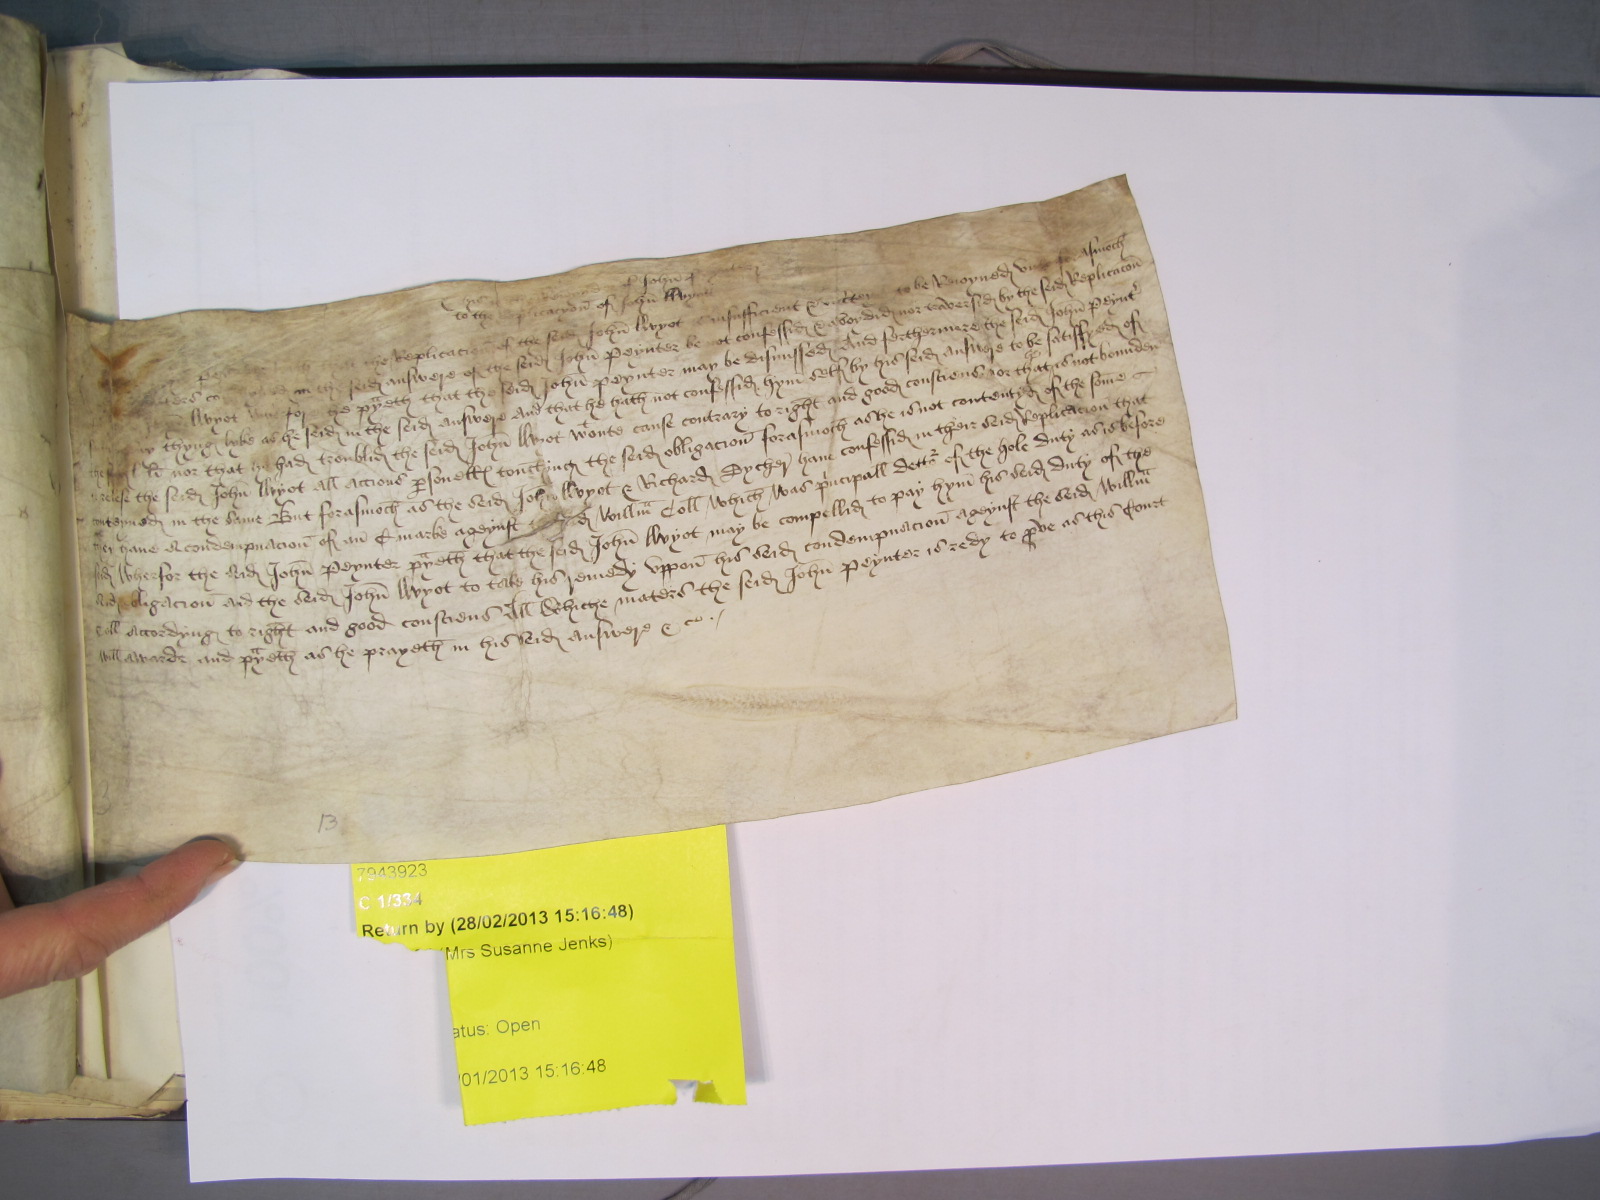 John
to the Replicacyon of John Wyot
the Replicacion of the seid John Wyot insufficient to be Reioyned vnto forasmoch
maters in the seid answere of the seid John Poynter be not confessid & avoydid nor traversid by the seid Replicacon
Wyot wherfor he p̃yeth that the seid John Poynter may be dismissed And forthermore the seid John Poynt
thyng lyke as he seid in the seid answere And that he hath not confessid hym self by his seid answere to be satisfyed of
nor that he had troublid the seid John Wyot wtoute cause contrary to right and good consciens nor that he is not bounden
to relese the seid John Wyot all accions p̱sonell touchyng the seid obligacion forasmoch as he is not contentyd of the some
conteyned in the same But forasmoch as the seid John Wyot & Richard Dycher haue confessid in their seid Replicacion that
they haue a condempnacion of an C marke ageynst the seid Willm̃ Coll which was p̱ncipall dettr of the hole duty as is before
seid Wherfor the seid John Poynter p̃yeth that the seid John Wyot may be compellid to pay hym his seid duty of the
seid obligacion and the seid John Wyot to take his remedy vppon his seid condempnacion ageynst the seid Willm̃
Coll accordyng to right and good consciens All Whiche maters the seid John Poynter is redy to p̱ve as this Court
will awarde and p̃yeth as he prayeth in his seid answere &c
13
7943923
C 1/334
Return by (28/02/2013 15:16:48)
(Mrs Susanne Jenks)
atus: Open
/01/2013 15:16:48